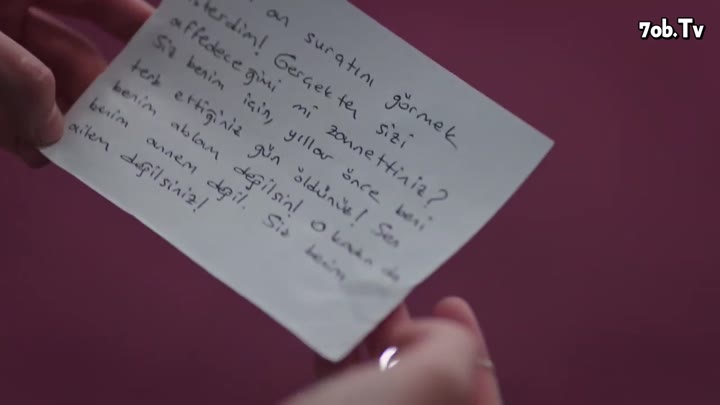 7ob.Tv
an suratını görmek
isterdim! Gerçekten sizi
affedeceğimi mi zannettiniz?
Siz benim için, yıllar önce beni
terk ettiğiniz gün öldünüz! Sen
benim ablam değilsin! O kadın da
benim annem değil. Siz benim
ailem değilsiniz!